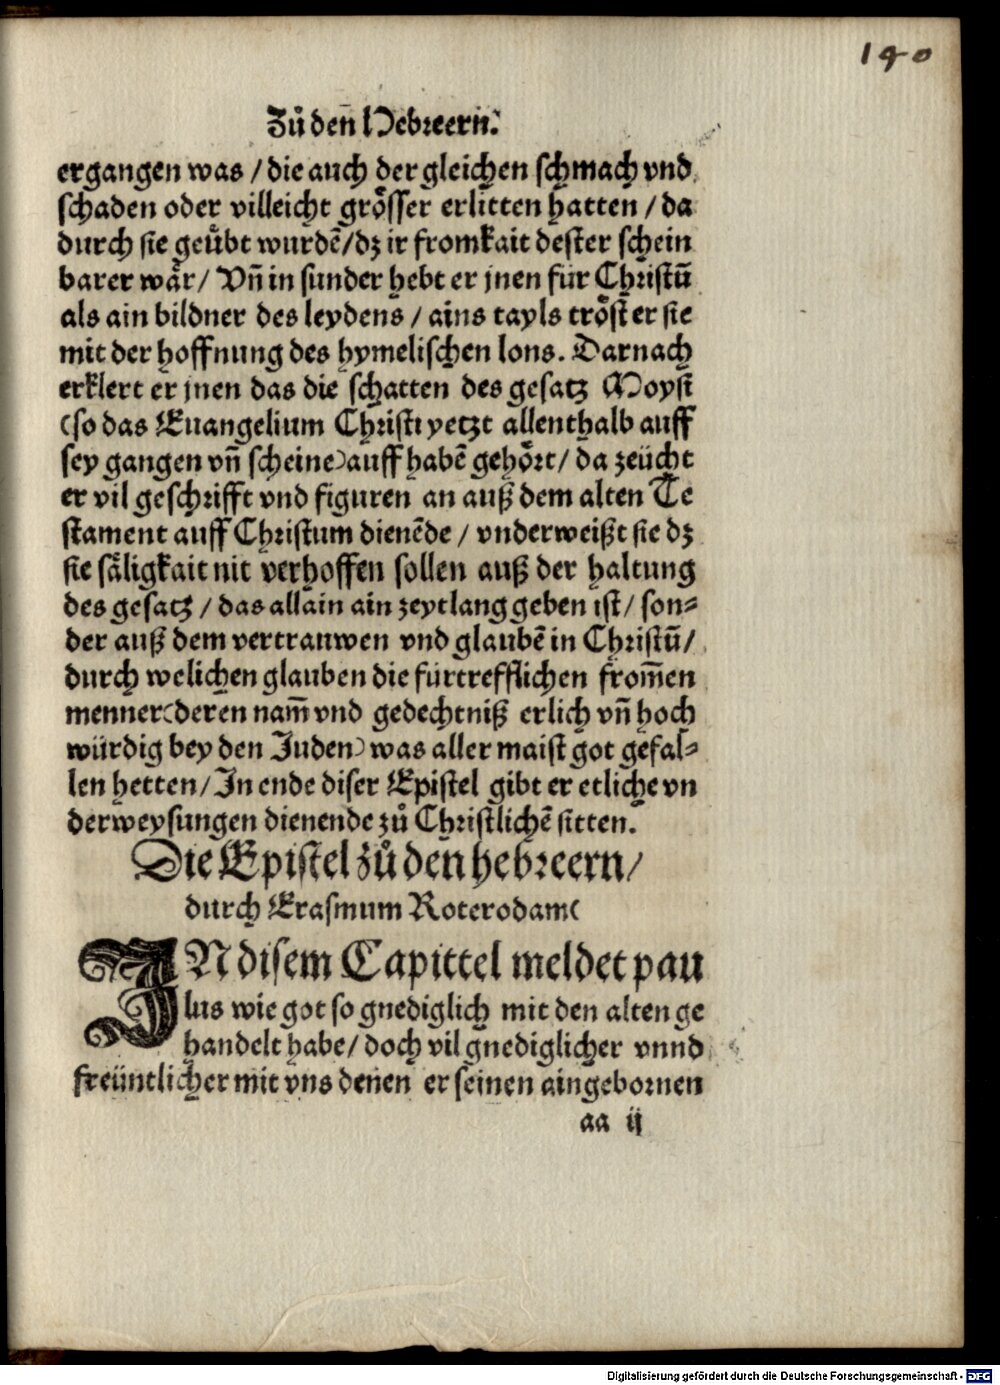 140
Zů den Hebreern.
ergangen was / die auch der gleichen schmach vnd
schaden oder villeicht grösser erlitten hatten / da
durch sie geübt wurdē/dz ir fromkait dester schein
barer wår / Vn̄ in sunder hebt er jnen für Christū
als ain bildner des leydens / ains tayls tröst er sie
mit der hoffnung des hymelischen lons. Darnach
erklert er jnen das die schatten des gesatz Moysi
(so das Euangelium Christi yetzt allenthalb auff
sey gangen vn̄ scheine) auff habē gehört / da zeücht
er vil geschrifft vnd figuren an auß dem alten Te
stament auff Christum dienēde / vnderweißt sie dz
sie såligkait nit verhoffen sollen auß der haltung
des gesatz / das allain ain zeytlang geben ist / son⸗
der auß dem vertrauwen vnd glaubē in Christū/
durch welichen glauben die fürtrefflichen from̄en
menner (deren nam̄ vnd gedechtniß erlich vn̄ hoch
würdig bey den Juden) was aller maist got gefal⸗
len hetten / In ende diser Epistel gibt er etliche vn
derweysungen dienende zů Christlichē sitten.
Die Epistel zů den hebreern/
durch Erasmum Roterodam(
IN disem Capittel meldet pau
lus wie got so gnediglich mit den alten ge
handelt habe / doch vil gnediglicher vnnd
freüntlicher mit vns denen er seinen aingebornen
aa ij
Digitalisierung gefördert durch die Deutsche Forschungsgemeinschaft - DFG